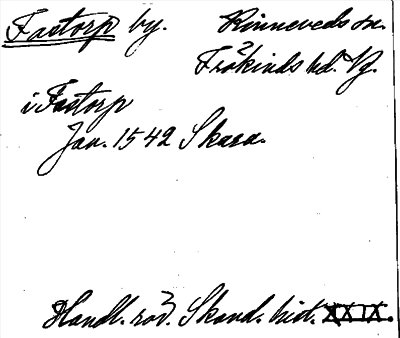 Fastorp by. Kinneveds sn.
Frökinds hd. Vg.
i Fastorp
Jan. 1542 Skara.
Handl. rör. Skand. hist. XXIX.